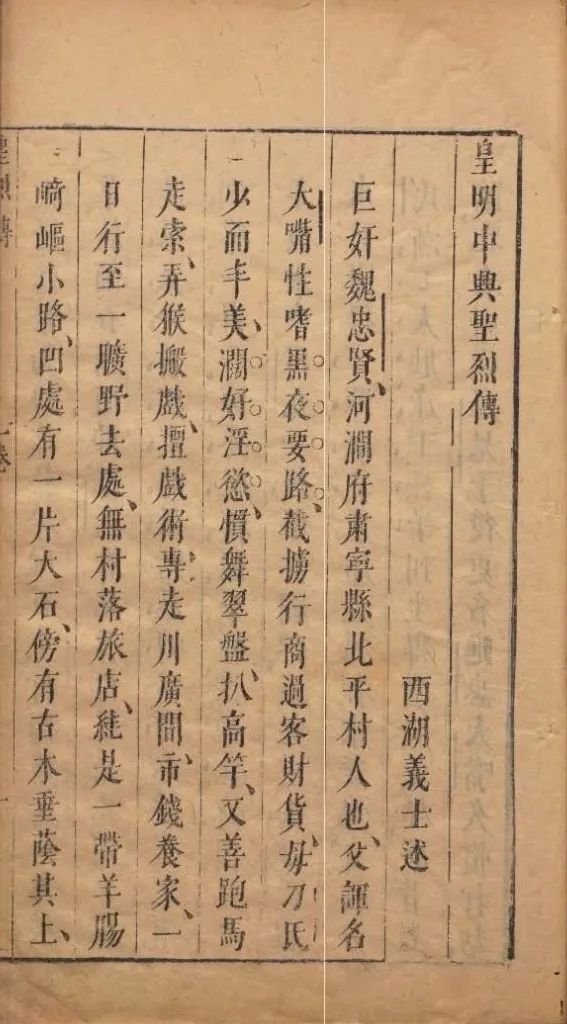 皇明中興聖烈傳
西湖義士述
巨奸魏忠賢、河澗府肅寧縣北平村人也、父諢名
大嘴性嗜黑夜要路、截擄行商過客財貨、毋刁氏
少而丰美、瀾好淫慾、慣舞翠盤、扒高竿、又善跑馬
走索、弄猴搬戲、擅戲術、專走川廣間、帀錢養家、一
日行至一曠野去處、無村落旅店、純是一帶羊腸
崎嶇小路、凹處有一片大石、傍有古木垂蔭其上、
皇烈傳
一卷
一